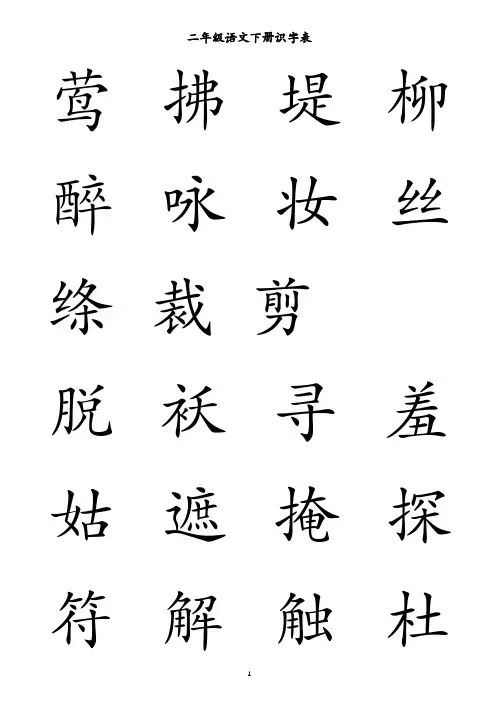 二年级语文下册识字表
莺 拂 堤 柳
醉 咏 妆 丝
绦 裁 剪
脱 袄 寻 羞
姑 遮 掩 探
符 解 触 杜
1